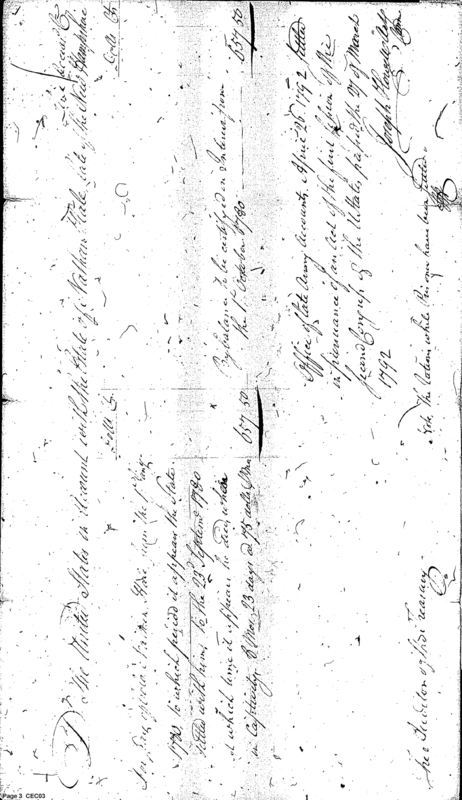 Dr The United States in Account with the State of Nathan Hale, late of the New Hampshire
Line deceas'd Cr
Dolls Cts
Dolls Cts
For pay of Nathan Hale from the 1st Jany
1780 to which period it appears the State
settled with him, to the 23d September 1780
at which time it appears he died, while
in Captivity 8 Mos. 23 days at 75 dolls per Mo
657 50
By balance to be certified on Interest from
the 1st October 1780
657 50
Office of State Army Accounts, April 25 1792 settled
in pursuance of an Act of the first session of the
second Congress of the U States, passed the 27 of March
1792
Joseph Howell
Note The Rations while Prisoner have been settled
The Auditor of the Treasury
Page 3 CEC03
1